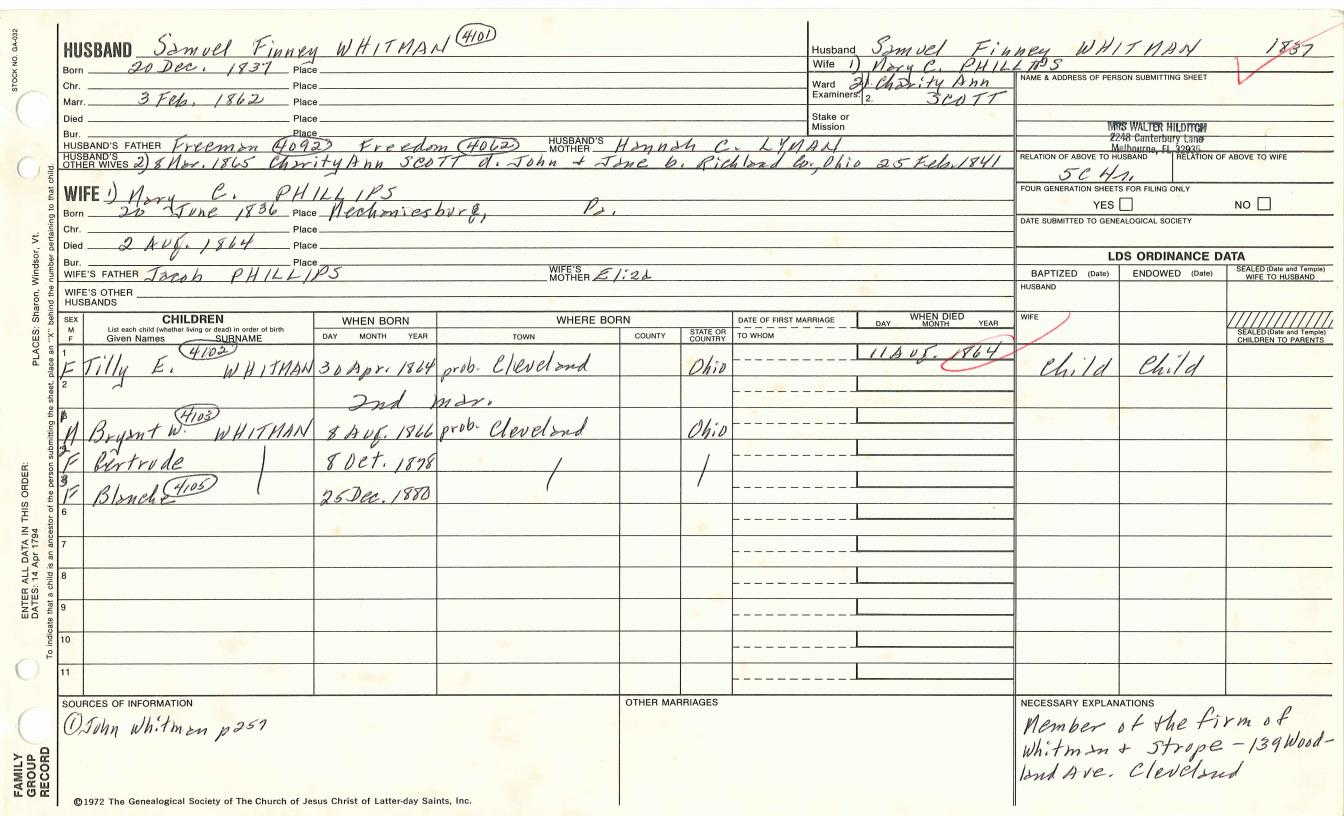 STOCK NO. GA-032
HUSBAND Samuel Finney WHITMAN 4101
Born 20 Dec. 1837 Place
Chr. Place
Marr. 3 Feb. 1862 Place
Died Place
Bur. Place
HUSBAND'S FATHER Freeman 4092 Freedom 4062 HUSBAND'S MOTHER Hannah C. LYMAN
HUSBAND'S OTHER WIVES 2) 8 Mar. 1865 Charity Ann SCOTT d. John + Jane b. Richland Co, Ohio 25 Feb. 1841
WIFE 1) Mary C. PHILLIPS
Born 20 June 1836 Place Mechanicsburg, Pa.
Chr. Place
Died 2 Aug. 1864 Place
Bur. Place
WIFE'S FATHER Jacob PHILLIPS WIFE'S MOTHER Eliza
WIFE'S OTHER HUSBANDS
Husband Samuel Finney WHITMAN 1837
Wife 1) Mary C. PHILLIPS
Ward 2) Charity Ann
Examiners: 2. SCOTT
Stake or Mission
NAME & ADDRESS OF PERSON SUBMITTING SHEET
MRS WALTER HILDITCH
2248 Canterbury Lane
Melbourne, FL 32935
RELATION OF ABOVE TO HUSBAND RELATION OF ABOVE TO WIFE
5C 4r.
FOUR GENERATION SHEETS FOR FILING ONLY
YES NO
DATE SUBMITTED TO GENEALOGICAL SOCIETY
LDS ORDINANCE DATA
BAPTIZED (Date) ENDOWED (Date) SEALED (Date and Temple) WIFE TO HUSBAND
HUSBAND
WIFE
SEALED (Date and Temple) CHILDREN TO PARENTS
SEX M F CHILDREN WHEN BORN WHERE BORN DATE OF FIRST MARRIAGE WHEN DIED
List each child (whether living or dead) in order of birth
Given Names SURNAME DAY MONTH YEAR TOWN COUNTY STATE OR COUNTRY TO WHOM DAY MONTH YEAR
1 F Tilly E. 4102 WHITMAN 30 Apr. 1864 prob. Cleveland Ohio 11 Aug. 1864 Child Child
2 2nd mar.
1 M Bryant W. 4103 WHITMAN 8 Aug. 1866 prob. Cleveland Ohio
2 F Gertrude 8 Oct. 1878
3 F Blanche 4105 25 Dec. 1880
6
7
8
9
10
11
SOURCES OF INFORMATION OTHER MARRIAGES NECESSARY EXPLANATIONS
① John Whitman p257
Member of the firm of
Whitman + Strope - 139 Wood-
land Ave. Cleveland
©1972 The Genealogical Society of The Church of Jesus Christ of Latter-day Saints, Inc.
FAMILY GROUP RECORD
ENTER ALL DATA IN THIS ORDER:
DATES: 14 Apr 1794
PLACES: Sharon, Windsor, Vt.
To indicate that a child is an ancestor of the person submitting the sheet, place an "X" behind the number pertaining to that child.